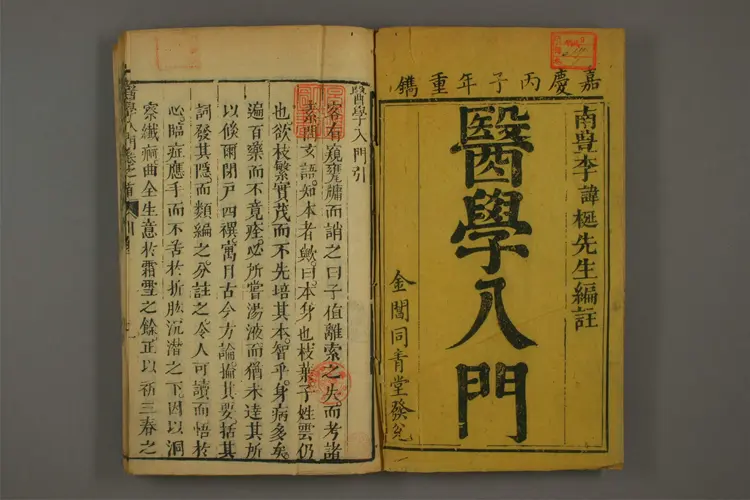 嘉慶丙子年重鐫
南豐李諱梴先生編註
醫學入門
金閶同青堂發兌
醫學入門引
客有窺甕牖而誚之曰子值離索之失而考諸
素問玄語知本者歟曰本身也枝葉子姓雲仍
也欲枝繁實茂而不先培其本智乎身病多矣
遍百藥而不竟痊必所嘗湯液而猶未達其所
以倏爾閉戶四禩寓目古今方論掄其要括其
詞發其隱而類編之分註之令人可讀而悟於
心臨症應手而不苦於折肱沉潛之下因以洞
察纖疴曲全生意於霜雪之餘正以祈三春之
醫學入門卷之首